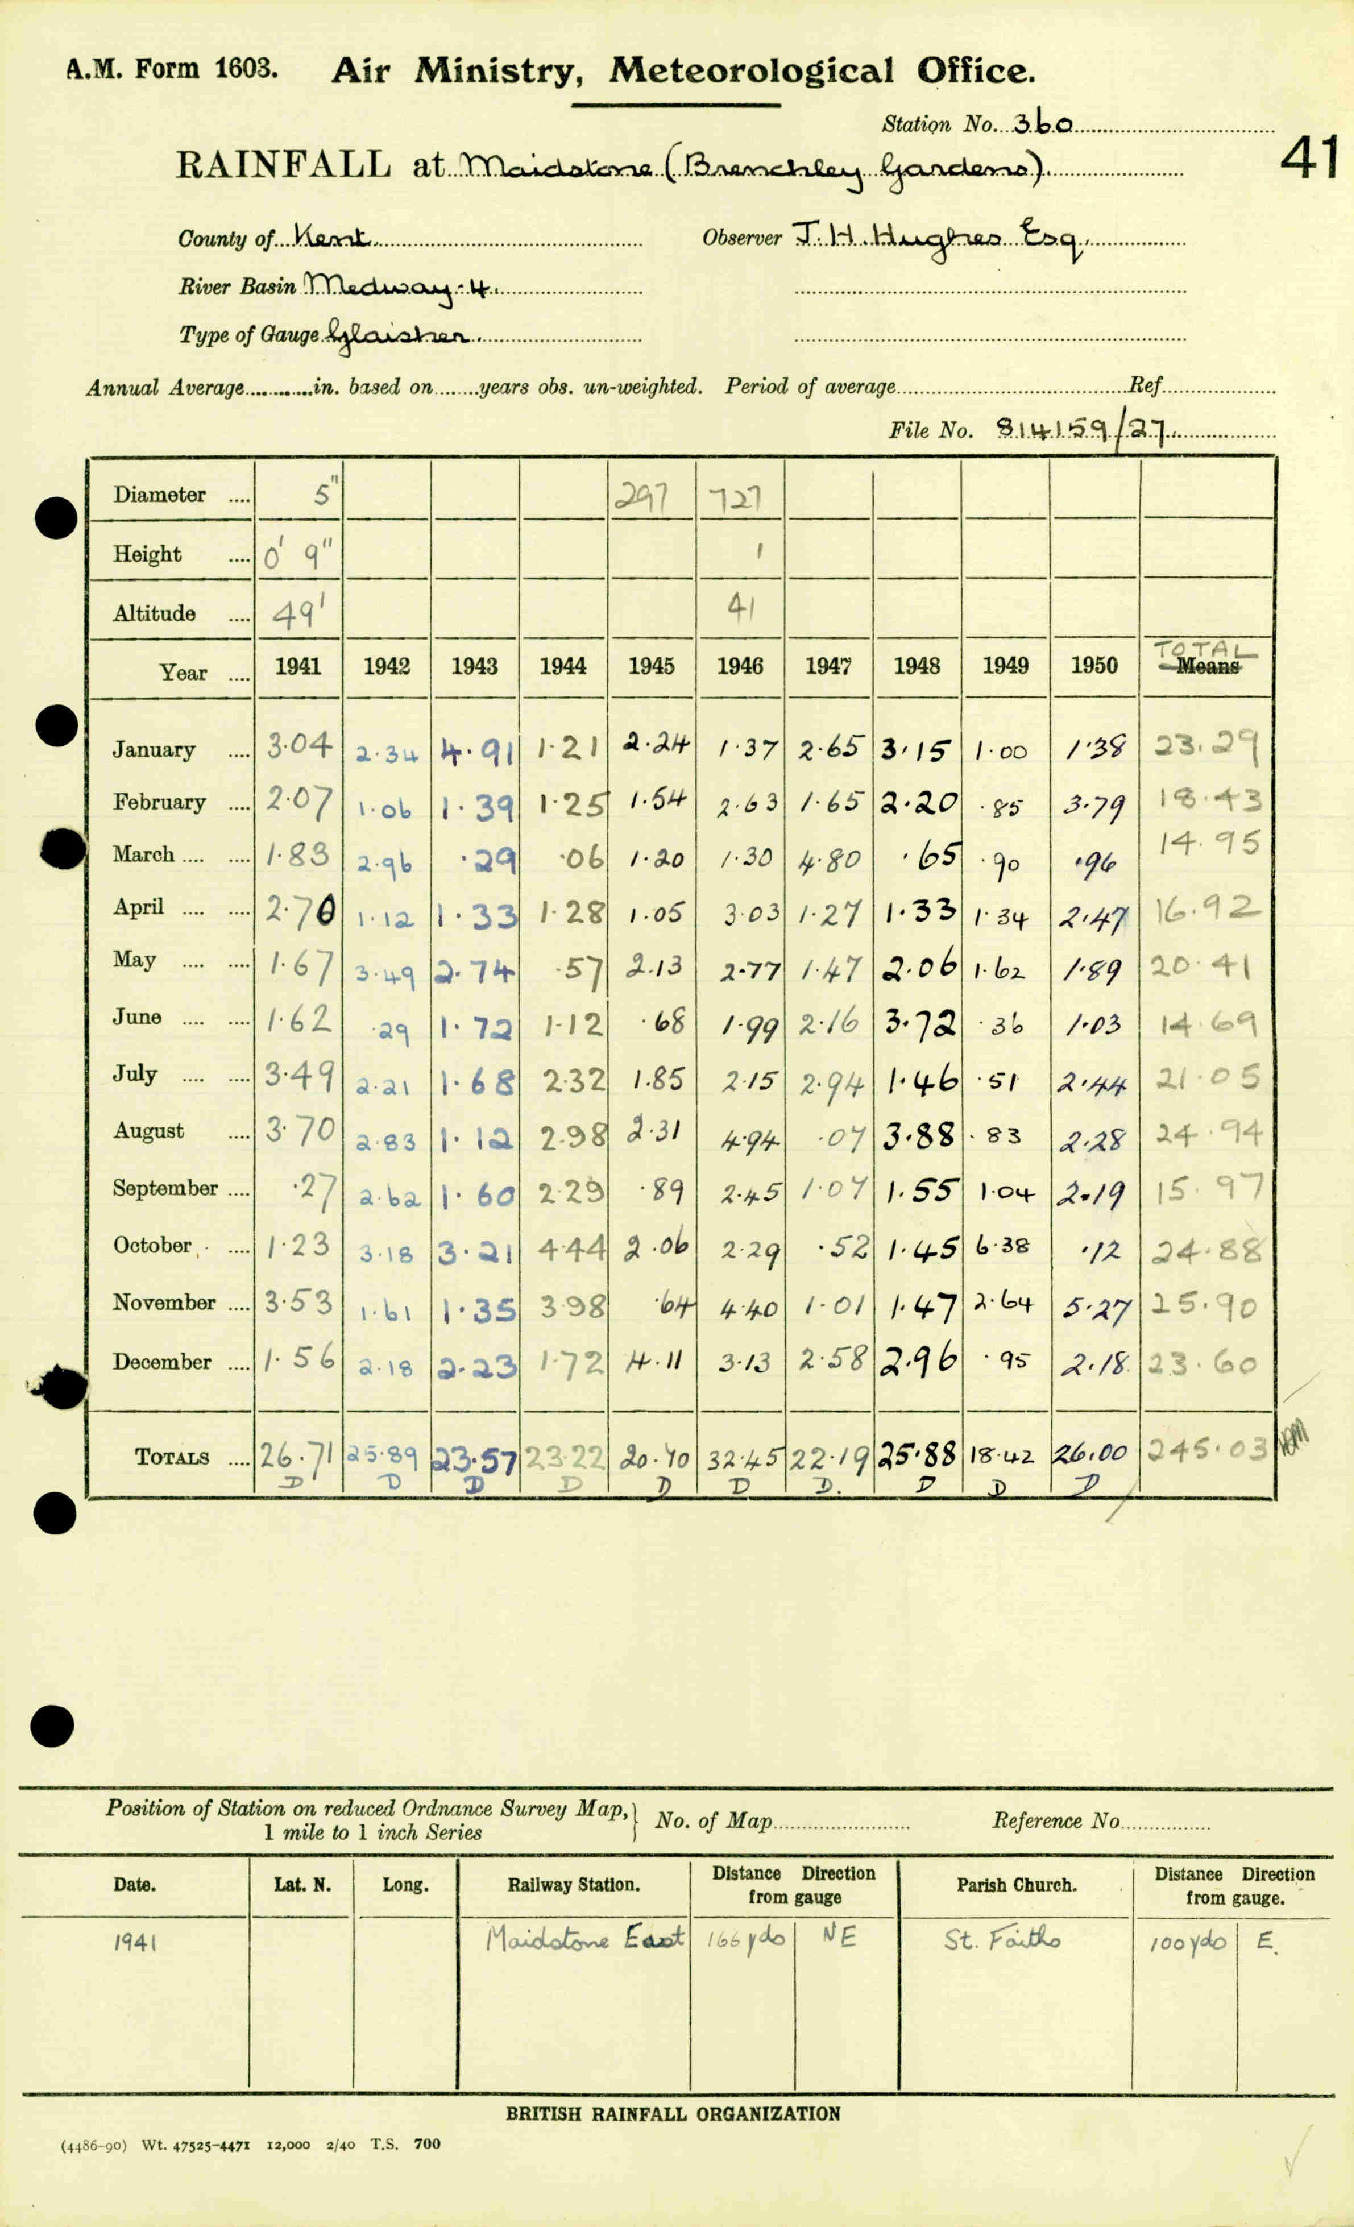 A.M. Form 1603. Air Ministry, Meteorological Office.
Station No. 360
41
RAINFALL at Maidstone (Brenchley Gardens)
County of Kent Observer J. H. Hughes Esq.
River Basin Medway - 4.
Type of Gauge Glaisher
Annual Average............in. based on........years obs. un-weighted. Period of average.............Ref.............
File No. 814159/27
Diameter .... 5" 297 727
Height .... 0' 9" 1
Altitude .... 49' 41
TOTAL
Year .... 1941 1942 1943 1944 1945 1946 1947 1948 1949 1950 Means
January .... 3·04 2·34 4·91 1·21 2·24 1·37 2·65 3·15 1·00 1·38 23·29
February .... 2·07 1·06 1·39 1·25 1·54 2·63 1·65 2·20 ·85 3·79 18·43
March .... .... 1·83 2·96 ·29 ·06 1·20 1·30 4·80 ·65 ·90 ·96 14·95
April .... .... 2·70 1·12 1·33 1·28 1·05 3·03 1·27 1·33 1·34 2·47 16·92
May .... .... 1·67 3·49 2·74 ·57 2·13 2·77 1·47 2·06 1·62 1·89 20·41
June .... .... 1·62 ·29 1·72 1·12 ·68 1·99 2·16 3·72 ·36 1·03 14·69
July .... .... 3·49 2·21 1·68 2·32 1·85 2·15 2·94 1·46 ·51 2·44 21·05
August .... 3·70 2·83 1·12 2·98 2·31 4·94 ·07 3·88 ·83 2·28 24·94
September .... ·27 2·62 1·60 2·29 ·89 2·45 1·07 1·55 1·04 2·19 15·97
October .... 1·23 3·18 3·21 4·44 2·06 2·29 ·52 1·45 6·38 ·12 24·88
November .... 3·53 1·61 1·35 3·98 ·64 4·40 1·01 1·47 2·64 5·27 25·90
December .... 1·56 2·18 2·23 1·72 4·11 3·13 2·58 2·96 ·95 2·18 23·60
TOTALS .... 26·71 25·89 23·57 23·22 20·70 32·45 22·19 25·88 18·42 26·00 245·03
D D D D D D D. D D D
Position of Station on reduced Ordnance Survey Map, 1 mile to 1 inch Series } No. of Map............ Reference No............
Date. Lat. N. Long. Railway Station. Distance Direction from gauge Parish Church. Distance Direction from gauge.
1941 Maidstone East 166 yds NE St. Faiths 100 yds E.
BRITISH RAINFALL ORGANIZATION
(4486-90) Wt. 47525-4471 12,000 2/40 T.S. 700